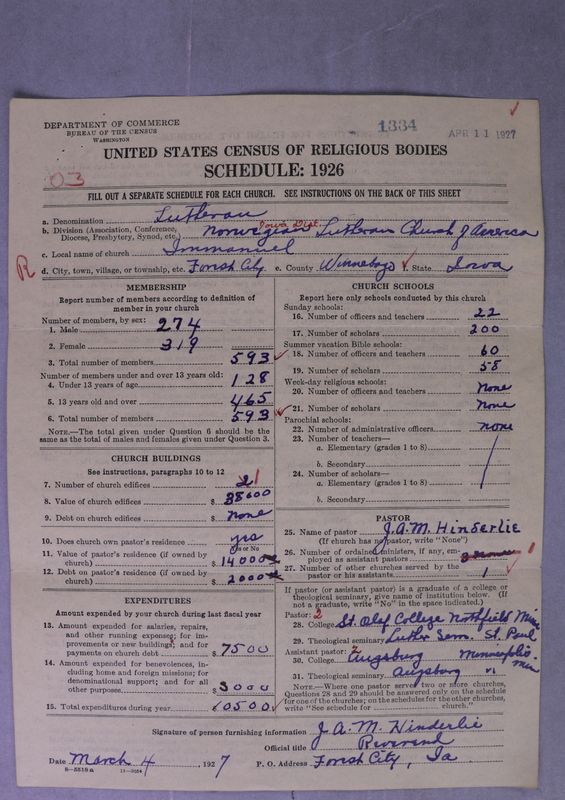 DEPARTMENT OF COMMERCE
BUREAU OF THE CENSUS
WASHINGTON
1334
APR 11 1927
UNITED STATES CENSUS OF RELIGIOUS BODIES
SCHEDULE: 1926
03
FILL OUT A SEPARATE SCHEDULE FOR EACH CHURCH. SEE INSTRUCTIONS ON THE BACK OF THIS SHEET
a. Denomination Lutheran
Iowa Dist.
b. Division (Association, Conference, Diocese, Presbytery, Synod, etc.) Norwegian Lutheran Church of America
c. Local name of church Immanuel
R
d. City, town, village, or township, etc. Forest City e. County Winnebago State Iowa
MEMBERSHIP
Report number of members according to definition of
member in your church
Number of members, by sex:
1. Male 274
2. Female 319
3. Total number of members 593
Number of members under and over 13 years old:
4. Under 13 years of age 128
5. 13 years old and over 465
6. Total number of members 593
NOTE.—The total given under Question 6 should be the
same as the total of males and females given under Question 3.
CHURCH BUILDINGS
See instructions, paragraphs 10 to 12
7. Number of church edifices 2 1
8. Value of church edifices $ 38600
9. Debt on church edifices $ None
10. Does church own pastor's residence? yes
Yes or No
11. Value of pastor's residence (if owned by
church) $ 14000
12. Debt on pastor's residence (if owned by
church) $ 2000
EXPENDITURES
Amount expended by your church during last fiscal year
13. Amount expended for salaries, repairs,
and other running expenses; for im-
provements or new buildings; and for
payments on church debt $ 7500
14. Amount expended for benevolences, in-
cluding home and foreign missions; for
denominational support; and for all
other purposes $ 3000
15. Total expenditures during year 10500
CHURCH SCHOOLS
Report here only schools conducted by this church
Sunday schools:
16. Number of officers and teachers 22
17. Number of scholars 200
Summer vacation Bible schools:
18. Number of officers and teachers 60
19. Number of scholars 58
Week-day religious schools:
20. Number of officers and teachers None
21. Number of scholars None
Parochial schools:
22. Number of administrative officers none
23. Number of teachers—
a. Elementary (grades 1 to 8)
b. Secondary
24. Number of scholars—
a. Elementary (grades 1 to 8)
b. Secondary
PASTOR
25. Name of pastor J.A.M. Hinderlie
(If church has no pastor, write "None")
26. Number of ordained ministers, if any, em-
ployed as assistant pastors 1
27. Number of other churches served by the
pastor or his assistants 1
If pastor (or assistant pastor) is a graduate of a college or
theological seminary, give name of institution below. (If
not a graduate, write "No" in the space indicated.)
Pastor: 2
28. College St. Olaf College Northfield Minn
29. Theological seminary Luther Sem. St. Paul
Assistant pastor: 2
30. College Augsburg Minneapolis Min
31. Theological seminary Augsburg "
NOTE.—Where one pastor served two or more churches,
Questions 28 and 29 should be answered only on the schedule
for one of the churches; on the schedules for the other churches,
write "See schedule for church."
Signature of person furnishing information J. A. M. Hinderlie
Official title Reverend
Date March 4, 1927 P. O. Address Forest City, Ia.
8—5518a 11—9034